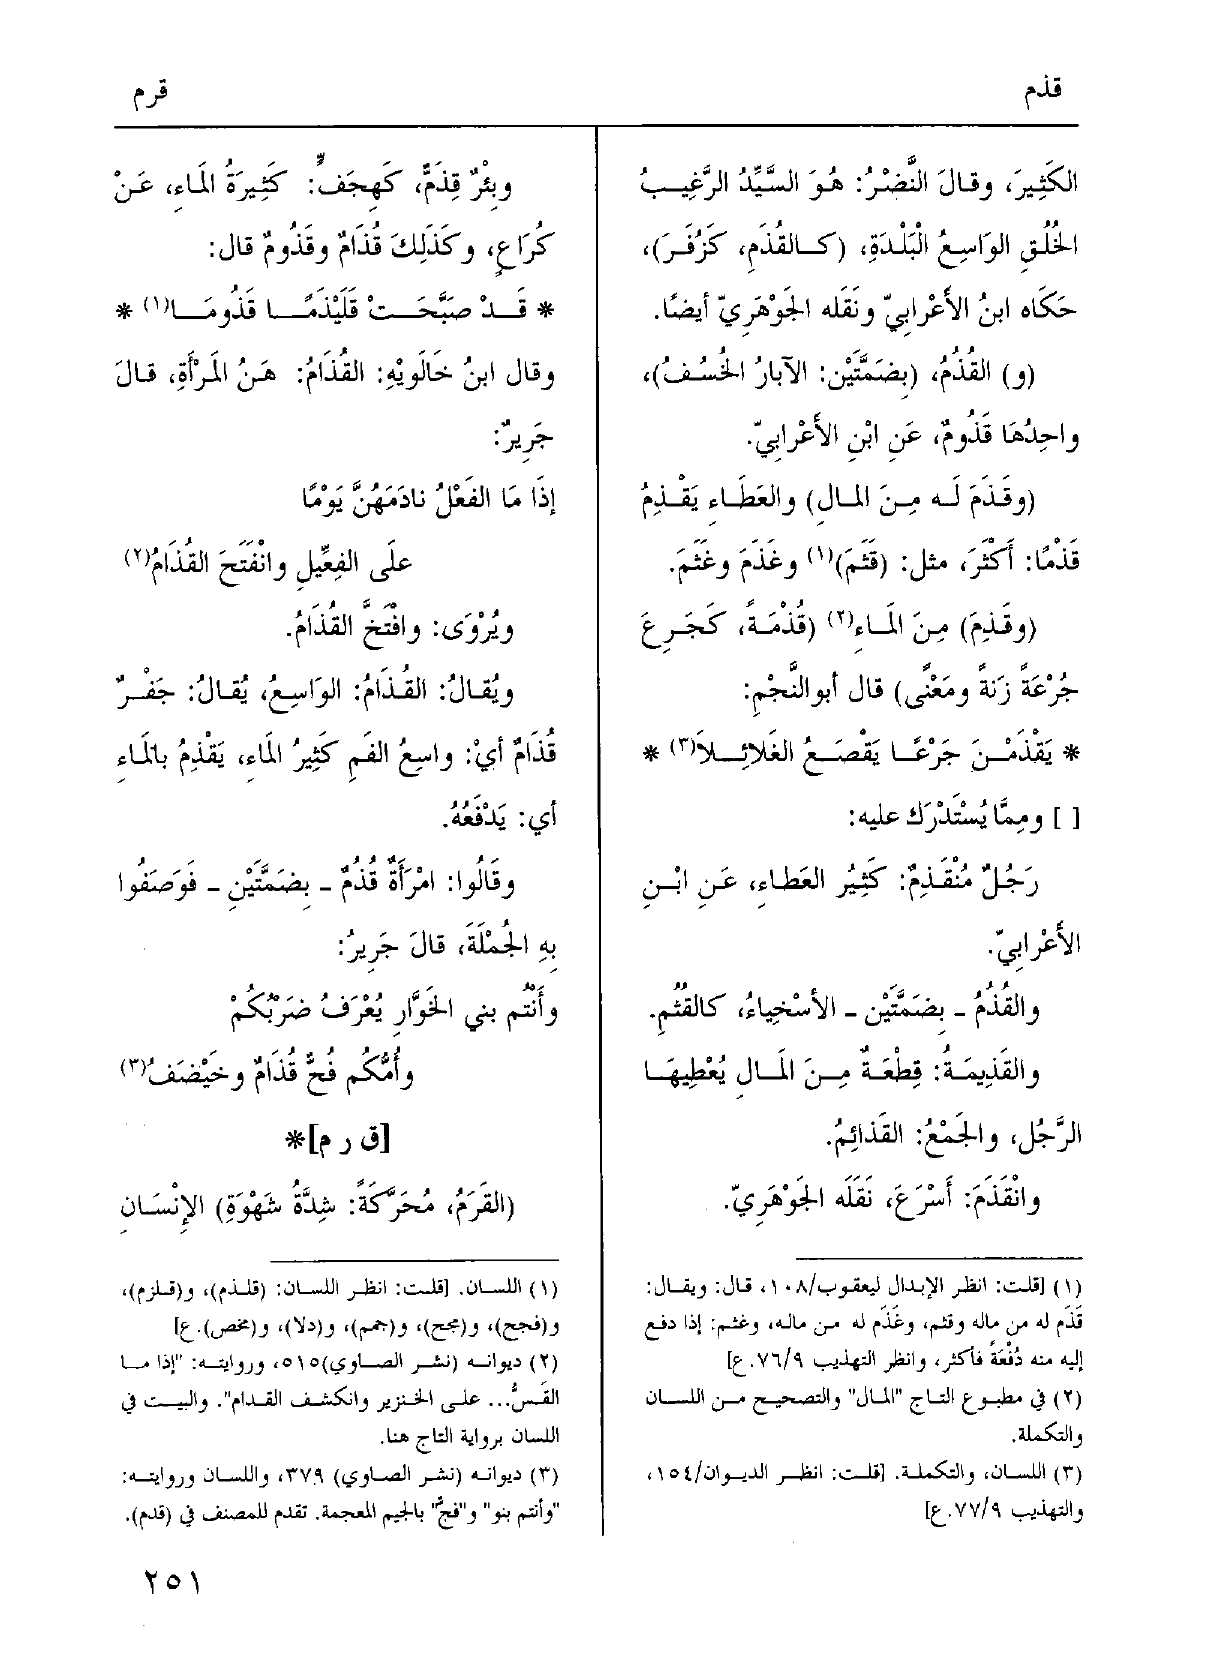 قذم
قرم
الكَثِيرَ، وقالَ النَّضْرُ: هُوَ السَّيِّدُ الرَّغِيبُ
الخُلُقِ الوَاسِعُ الْبَلْدَةِ، (كالقُذَمِ، كَزُفَرَ)،
حَكَاه ابنُ الأَعْرابِيّ ونَقَله الجَوْهَرِيّ أيضًا.
(و) القُذُمُ، (بِضَمَّتَيْن: الآبارُ الخُسُفُ)،
واحِدُهَا قَذُومٌ، عَنِ ابْنِ الأَعْرابِيّ.
(وقَذَمَ لَه مِنَ المال) والعَطَاء يَقْذِمُ
قَذْمًا: أَكْثَرَ، مثل: (قَثَمَ)(١) وغَذَمَ وغَثَمَ.
(وقَذِمَ) مِنَ المَاءِ(٢) (قُذْمَةً، كَجَرِعَ
جُرْعَةً زِنَةً ومَعْنًى) قال أبوالنَّجْمِ:
* يَقْذَمْنَ جَرْعًا يَقْصَعُ الغَلائِلاَ(٣) *
[ ] ومِمَّا يُسْتَدْرَك عليه:
رَجُلٌ مُنْقَذِمٌ: كَثِيرُ العَطاءِ، عَنِ ابْنِ
الأَعْرابِيّ.
والقُذُمُ - بِضَمَّتَيْن - الأَسْخِياءُ، كالقُثُمِ.
والقَذِيمَةُ: قِطْعَةٌ مِنَ المَالِ يُعْطِيهَا
الرَّجُل، والجَمْعُ: القَذائِمُ.
وانْقَذَمَ: أَسْرَعَ، نَقَلَه الجَوْهَرِيّ.
(١) [قلت: انظر الإبدال ليعقوب/١٠٨، قال: ويقال:
قذَم له من ماله وقثم، وغَذَم له من ماله، وغثم: إذا دفع
إليه منه دُفْعَةً فأكثر، وانظر التهذيب ٧٦/٩.ع]
(٢) في مطبوع التاج "المال" والتصحيح من اللسان
والتكملة.
(٣) اللسان، والتكملة. [قلت: انظر الديوان/١٥٤،
والتهذيب ٧٧/٩.ع]
وبِئْرٌ قِذَمٌّ، كَهِجَفٍّ: كَثِيرَةُ المَاءِ، عَنْ
كُرَاعٍ، وكَذَلِكَ قُذَامٌ وقَذُومٌ قال:
* قَدْ صَبَّحَتْ قَلَيْذَمًا قَذُومَا(١) *
وقال ابنُ خَالَوَيْهِ: القُذَامُ: هَنُ المَرْأَةِ، قالَ
جَرِيرٌ:
إذَا مَا الفَعْلُ نادَمَهُنَّ يَوْمًا
علَى الفِعِّيلِ وانْفَتَحَ القُذَامُ(٢)
ويُرْوَى: وافْتَخَّ القُذَامُ.
ويُقالُ: القُذَامُ: الوَاسِعُ، يُقالُ: جَفْرٌ
قُذَامٌ أيْ: واسِعُ الفَمِ كَثِيرُ المَاءِ، يَقْذِمُ بالمَاءِ
أي: يَدْفَعُهُ.
وقَالُوا: امْرَأَةٌ قُذُمٌ - بِضَمَّتَيْنِ - فَوَصَفُوا
بِهِ الجُمْلَةَ، قالَ جَرِيرُ:
وأَنْتُم بني الخَوَّارِ يُعْرَفُ ضَرْبُكُمْ
وأُمُّكُم فُخٌّ قُذَامٌ وخَيْضَفُ(٣)
[ق ر م]*
(القَرَمُ، مُحَرَّكَةً: شِدَّةُ شَهْوَةِ) الإنْسَانِ
(١) اللسان. [قلت: انظر اللسان: (قلذم)، و(قلزم)،
و(فجج)، و(مجج)، و(جمم)، و(دلا)، و(مخص).ع]
(٢) ديوانه (نشر الصاوي)٥١٥، وروايته: "إذا ما
القَسُّ... على الخنزير وانكشف القدام". والبيت في
اللسان برواية التاج هنا.
(٣) ديوانه (نشر الصاوي) ٣٧٩، واللسان وروايته:
"وأنتم بنو" و"فجٌّ" بالجيم المعجمة. تقدم للمصنف في (قدم).
٢٥١